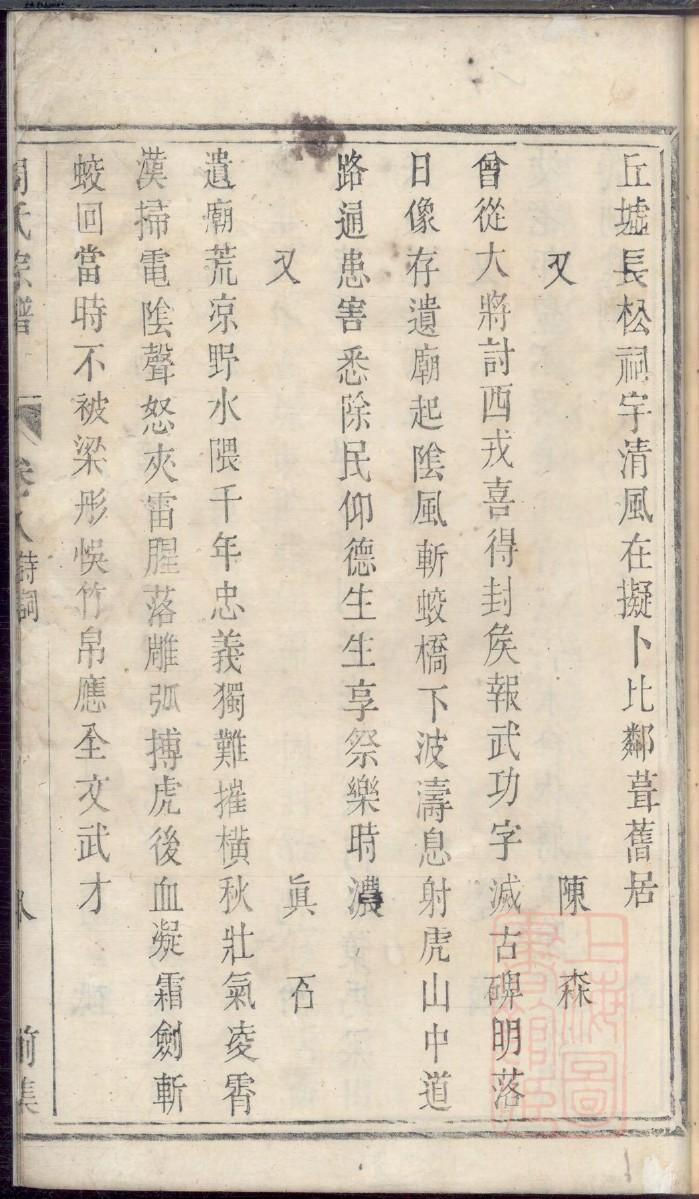 丘墟長松祠宇清風在擬卜比鄰葺舊居
又 陳森
曾從大將討西戎喜得封矦報武功字滅古碑明落
日像存遺廟起陰風斬蛟橋下波濤息射虎山中道
路通患害悉除民仰德生生享祭樂時濃
又 眞石
遺廟荒凉野水隈千年忠義獨難摧橫秋壯氣凌霄
漢掃電陰聲怒夾雷腥落雕弧搏虎後血凝霜劍斬
蛟回當時不被梁彤悞竹帛應全文武才
周氏宗譜 卷八 詩詞 八 前集
上海圖書館藏